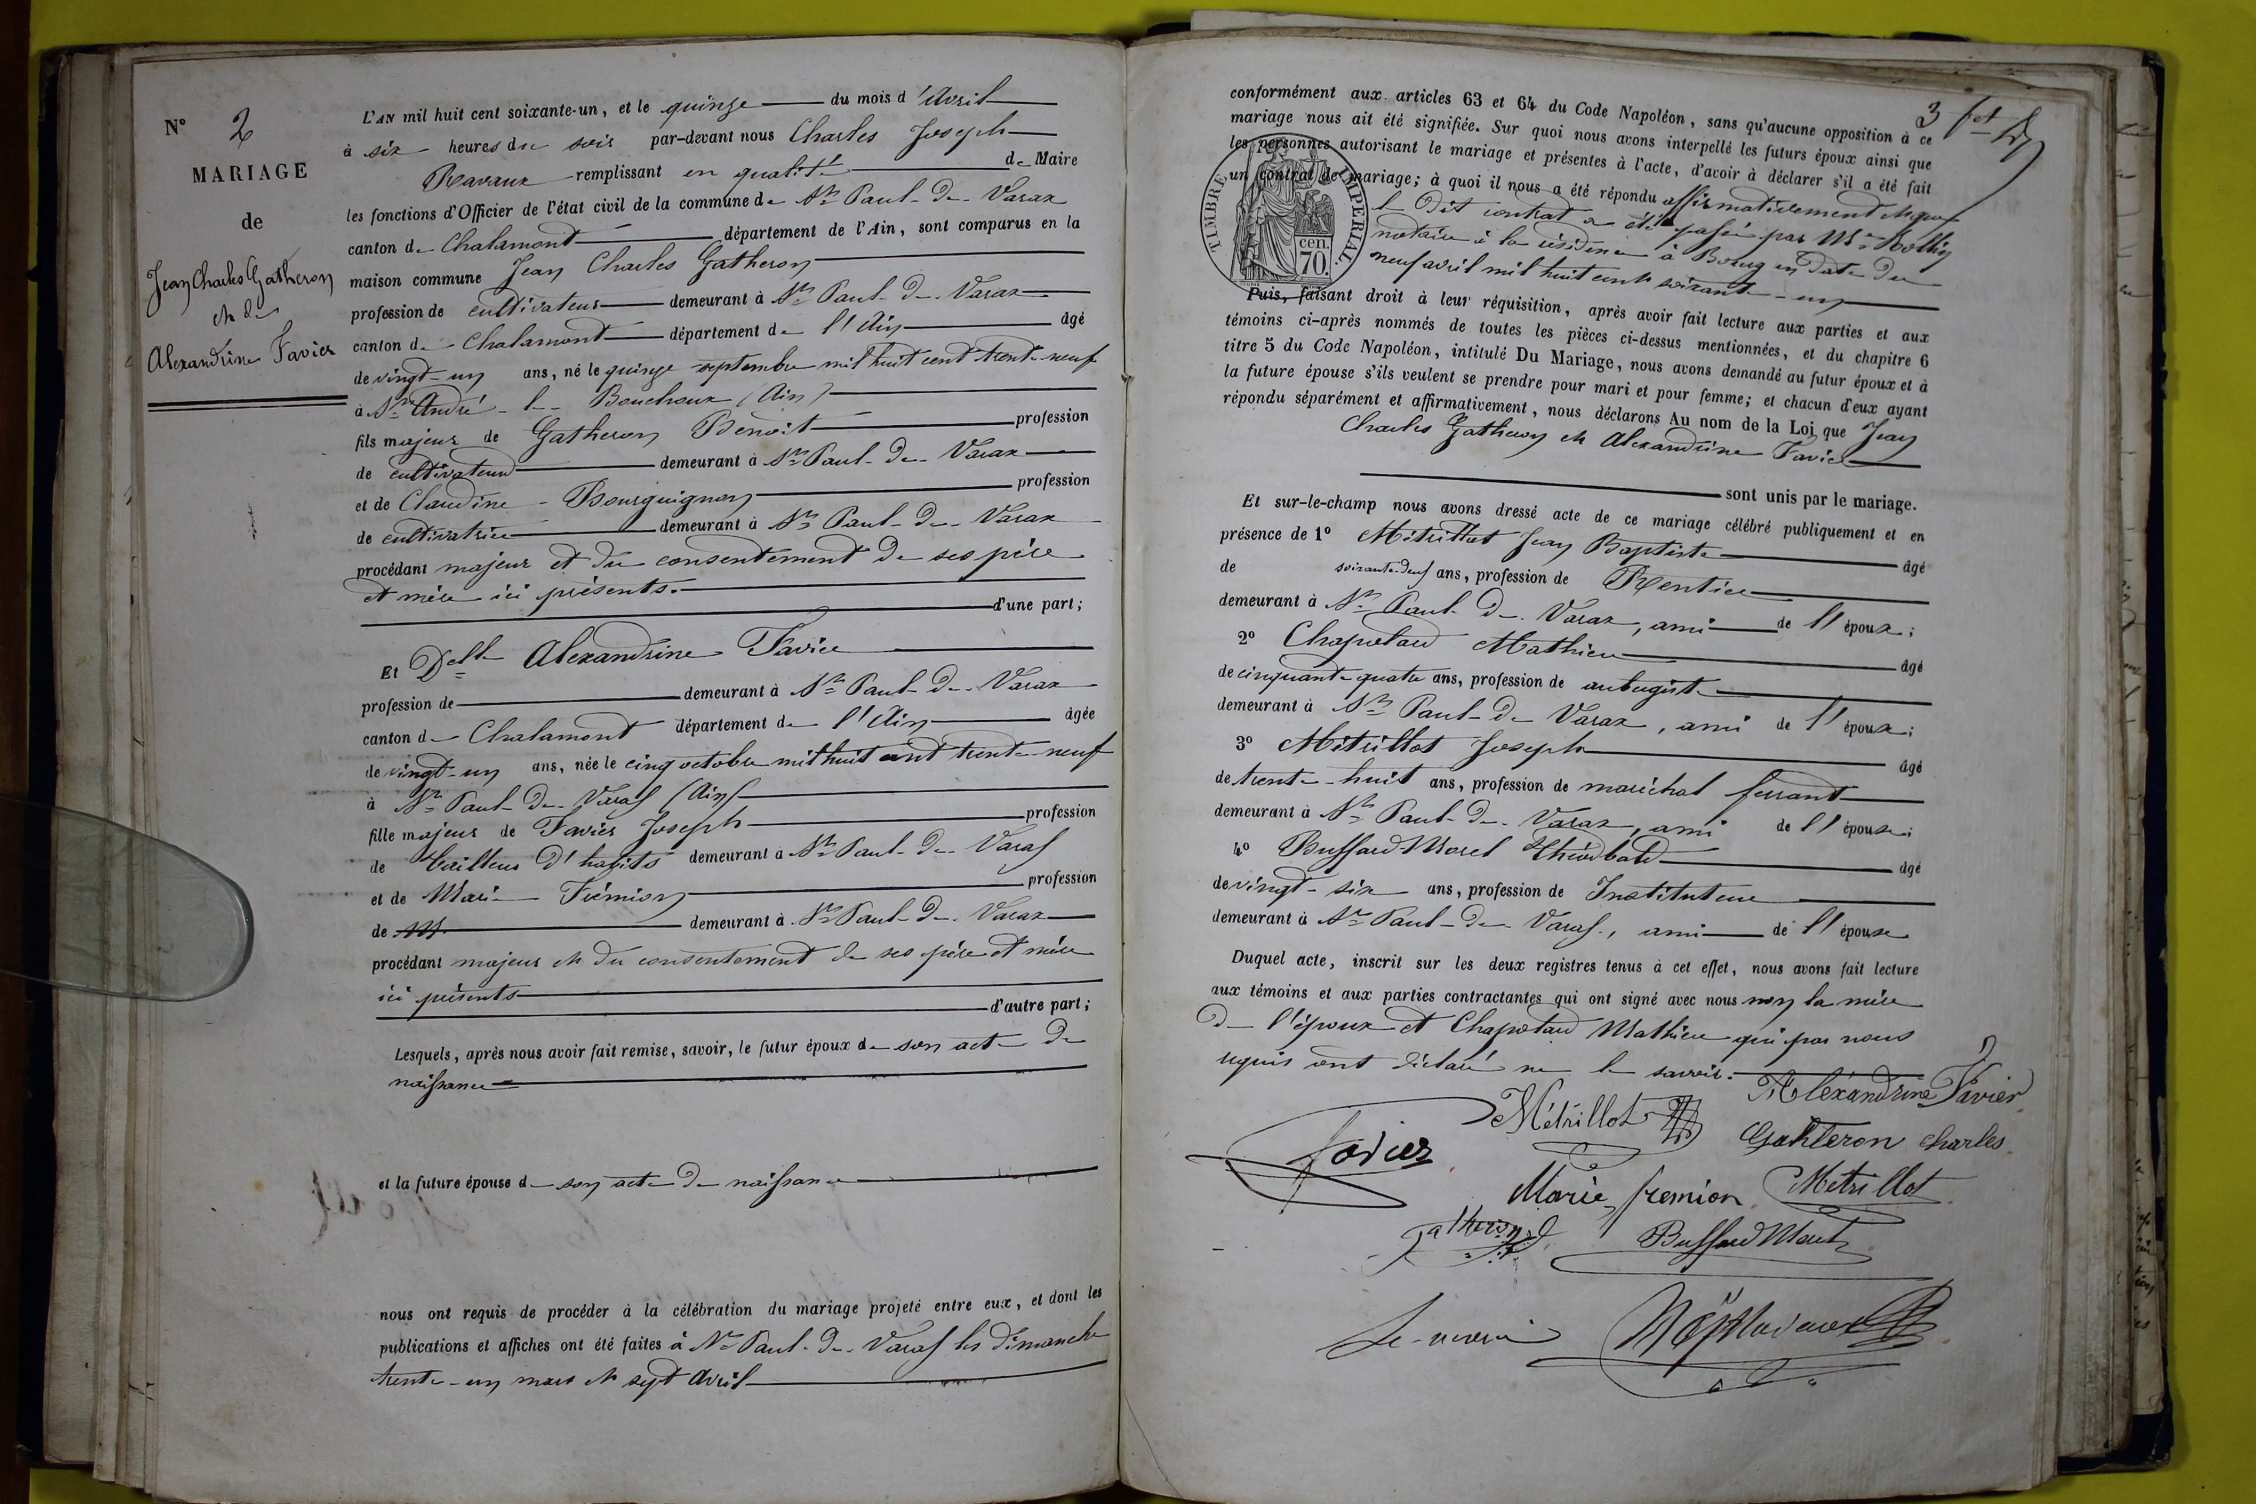 N° 2
MARIAGE
de
Jean Charles Gatheron
et de
Alexandrine Favier
L'AN mil huit cent soixante-un, et le quinze du mois d'Avril
à six heures du soir par-devant nous Charles Joseph
Ravaux remplissant en qualité de Maire
les fonctions d'Officier de l'état civil de la commune de St Paul-de-Varax
canton de Chalamont département de l'Ain, sont comparus en la
maison commune Jean Charles Gatheron
profession de cultivateur demeurant à St Paul-de-Varax
canton de Chalamont département de l'Ain âgé
de vingt-un ans, né le quinze septembre mil huit cent trente-neuf
à St André-le-Bouchoux (Ain)
fils majeur de Gatheron Benoit profession
de cultivateur demeurant à St Paul-de-Varax
et de Claudine Bourguignon profession
de cultivatrice demeurant à St Paul-de-Varax
procédant majeur et du consentement de ses père
et mère ici présents.
d'une part;
Et Delle Alexandrine Favier
profession de demeurant à St Paul-de-Varax
canton de Chalamont département de l'Ain âgée
de vingt-un ans, née le cinq octobre mil huit cent trente-neuf
à St Paul-de-Varax (Ain)
fille majeur de Favier Joseph profession
de tailleur d'habits demeurant à St Paul-de-Varax
et de Marie Frémion profession
de demeurant à St Paul-de-Varax
procédant majeur et du consentement de ses père et mère
ici présents
d'autre part;
Lesquels, après nous avoir fait remise, savoir, le futur époux de son acte de
naissance
et la future épouse de son acte de naissance
nous ont requis de procéder à la célébration du mariage projeté entre eux, et dont les
publications et affiches ont été faites à St Paul-de-Varax les dimanche
trente-un mars et sept avril
3
conformément aux articles 63 et 64 du Code Napoléon, sans qu'aucune opposition à ce
mariage nous ait été signifiée. Sur quoi nous avons interpellé les futurs époux ainsi que
les personnes autorisant le mariage et présentes à l'acte, d'avoir à déclarer s'il a été fait
un contrat de mariage; à quoi il nous a été répondu affirmativement et que
le dit contrat a été passé par Me
notaire à la résidence à Bourg en date du
neuf avril mil huit cent soixante-un
TIMBRE IMPERIAL.
cen.
70.
Puis, faisant droit à leur réquisition, après avoir fait lecture aux parties et aux
témoins ci-après nommés de toutes les pièces ci-dessus mentionnées, et du chapitre 6
titre 5 du Code Napoléon, intitulé Du Mariage, nous avons demandé au futur époux et à
la future épouse s'ils veulent se prendre pour mari et pour femme; et chacun d'eux ayant
répondu séparément et affirmativement, nous déclarons Au nom de la Loi que Jean
Charles Gatheron et Alexandrine Favier
sont unis par le mariage.
Et sur-le-champ nous avons dressé acte de ce mariage célébré publiquement et en
présence de 1° Métrillot Jean Baptiste âgé
de soixante-deux ans, profession de Rentier
demeurant à St Paul-de-Varax, ami de l'époux;
2° Chapotard Mathieu âgé
de cinquante-quatre ans, profession de aubergiste
demeurant à St Paul-de-Varax, ami de l'époux;
3° Métrillot Joseph âgé
de trente-huit ans, profession de maréchal ferrant
demeurant à St Paul-de-Varax, ami de l'épouse;
4° Buffard Morel Théodbald âgé
de vingt-six ans, profession de Instituteur
demeurant à St Paul-de-Varax, ami de l'épouse
Duquel acte, inscrit sur les deux registres tenus à cet effet, nous avons fait lecture
aux témoins et aux parties contractantes qui ont signé avec nous non la mère
de l'époux et Chapotard Mathieu qui par nous
requis ont déclaré ne le savoir.
Aléxandrine Favier
Métrillot
favier
Gahteron charles
Marie fremion
Métrillot
gatheron
Buffard Morel
Le maire